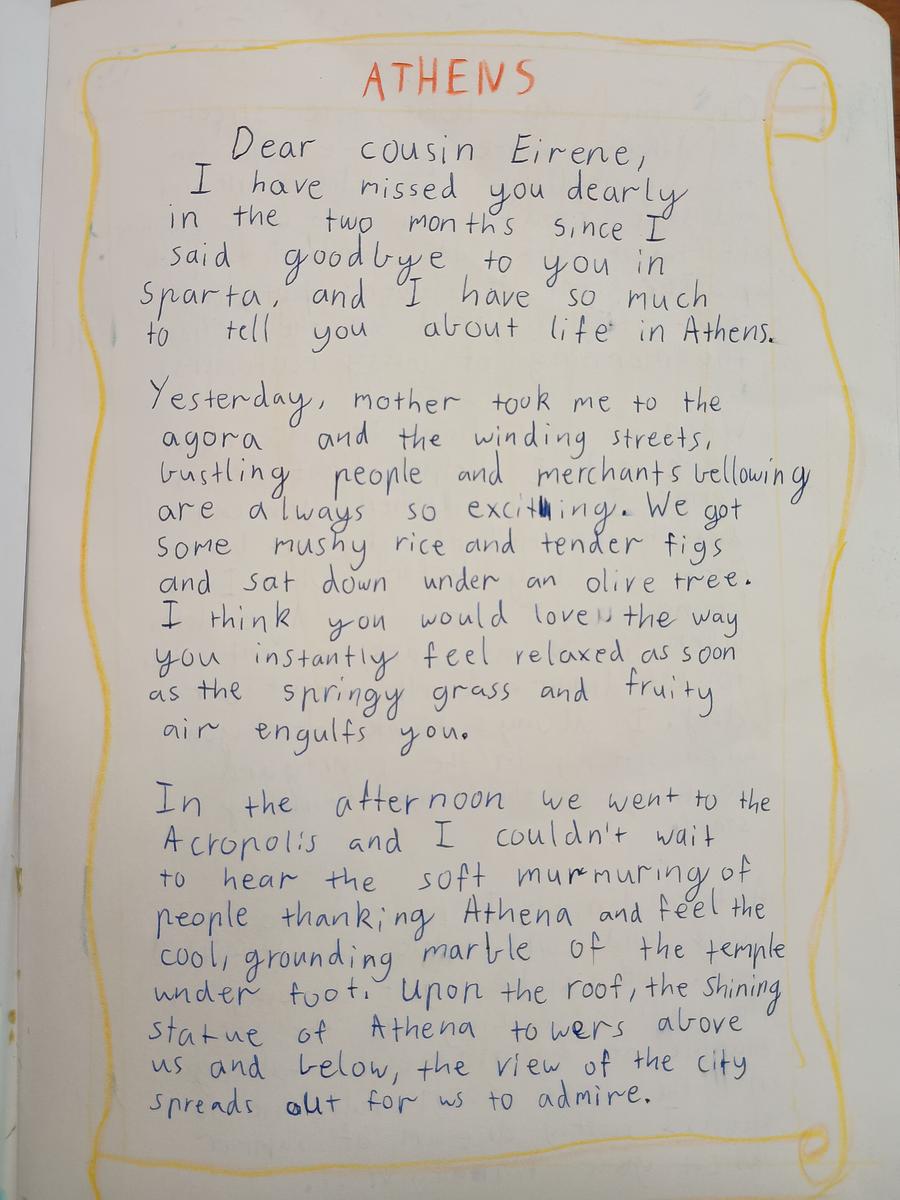 ATHENS
Dear cousin Eirene,
I have missed you dearly
in the two months since I
said goodbye to you in
Sparta, and I have so much
to tell you about life in Athens.
Yesterday, mother took me to the
agora and the winding streets,
bustling people and merchants bellowing
are always so exciting. We got
some mushy rice and tender figs
and sat down under an olive tree.
I think you would love the way
you instantly feel relaxed as soon
as the springy grass and fruity
air engulfs you.
In the afternoon we went to the
Acropolis and I couldn't wait
to hear the soft murmuring of
people thanking Athena and feel the
cool, grounding marble of the temple
under foot. Upon the roof, the shining
statue of Athena towers above
us and below, the view of the city
spreads out for us to admire.